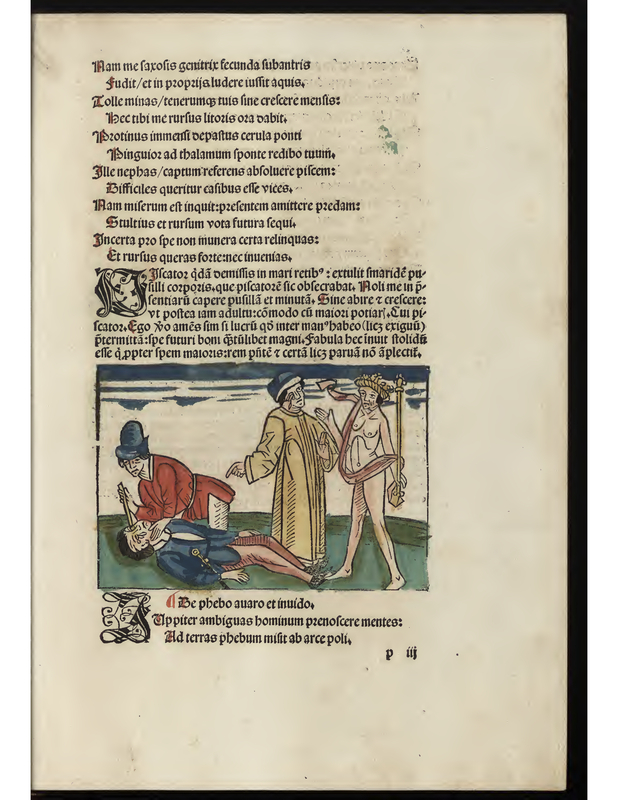 Nam me saxosis genitrix fecunda sub antris
Fudit/et in proprijs ludere iussit aquis.
Tolle minas/tenerumqꝫ tuis sine crescere mensis:
Hec tibi me rursus litoris ora dabit.
Protinus immensi depastus cerula ponti
Pinguior ad thalamum sponte redibo tuum.
Ille nephas/captum referens absoluere piscem:
Difficiles queritur casibus esse vices.
Nam miserum est inquit:presentem amittere predam:
Stultius et rursum vota futura sequi.
Incerta pro spe non munera certa relinquas:
Et rursus queras forte:nec inuenias.
PIscator qdā demissis in mari retibꝰ: extulit smaridē pu-
silli corporis.que piscatorē sic obsecrabat. Noli me in p̄-
sentiarū capere pusillā et minutā. Sine abire ⁊ crescere:
vt postea iam adultu:cōmodo cū maiori potiar. Cui pi-
scator.Ego v̓o amēs sim si lucrū qđ inter manꝰ habeo (licꝫ exiguū)
p̄termittā:spe futuri boni q̄tūlibet magni. Fabula hec inuit stolidū
esse q ꝓpter spem maioris:rem p̄ñtē ⁊ certā licꝫ paruā nō āplectit.
De phebo auaro et inuido.
IUppiter ambiguas hominum prenoscere mentes:
Ad terras phebum misit ab arce poli.
p iij